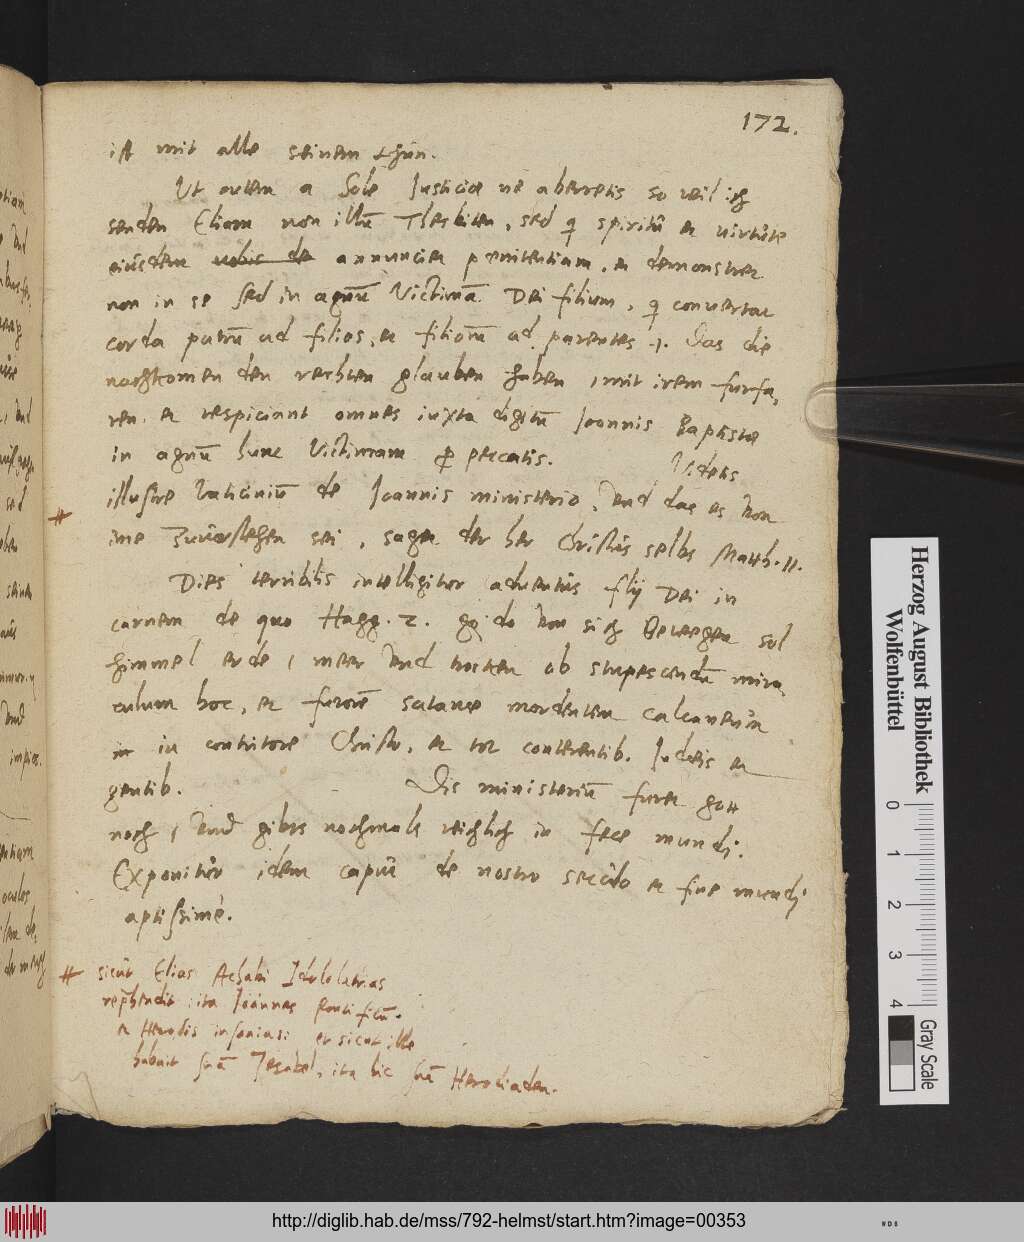 172.
ist mit alle seinem thun.
Ut autem a Sole Justiciae ne aberretis so will ich
senden Eliam non illū Thesbiten, sed q spiritū et virtute
eiusdem vobis de annunciet penitentiam, et demonstret
non in se sed in agnū Victimā Dei filium, q convertat
corda patrū ad filios, et filiorū ad parentes .i. Das die
nachkomen den rechten glauben haben, mit irem furfa,
ren. et respiciant omnes iuxta digitū Joannis Baptistae
in agnū hunc Victimam p peccatis. Videtis
illustre Vaticiniū de Joannis ministerio, Vnd das es von
# ime Zuuorstehen sei, saget der her Christus selbs Matth. 11.
Dies terribilis intelligitur adventus filij Dei in
carnem de quo Hagg. 2. do von sich bewegen sol
himmel erde, meer Vnd trocken ob stupescendū mira
culum hoc, et furorē satanae mordentem calcaneum
in in contritore Christo, et tot conterentib. Judeis et
gentib. Dis ministeriū furet gott
noch, Vnd gibts nochmals reichlich in fece mundi.
Exponitur idem caput de nostro seculo et fine mundi
aptissime.
# sicut Elias Achabi Idololatrias
reprhendit: ita Joannes Pontificū.
et Herodis insanias: et sicut ille
habuit suā Jesabel, ita hic suā Herodiaden.
Herzog August Bibliothek
Wolfenbüttel
0 1 2 3 4
Gray Scale
http://diglib.hab.de/mss/792-helmst/start.htm?image=00353